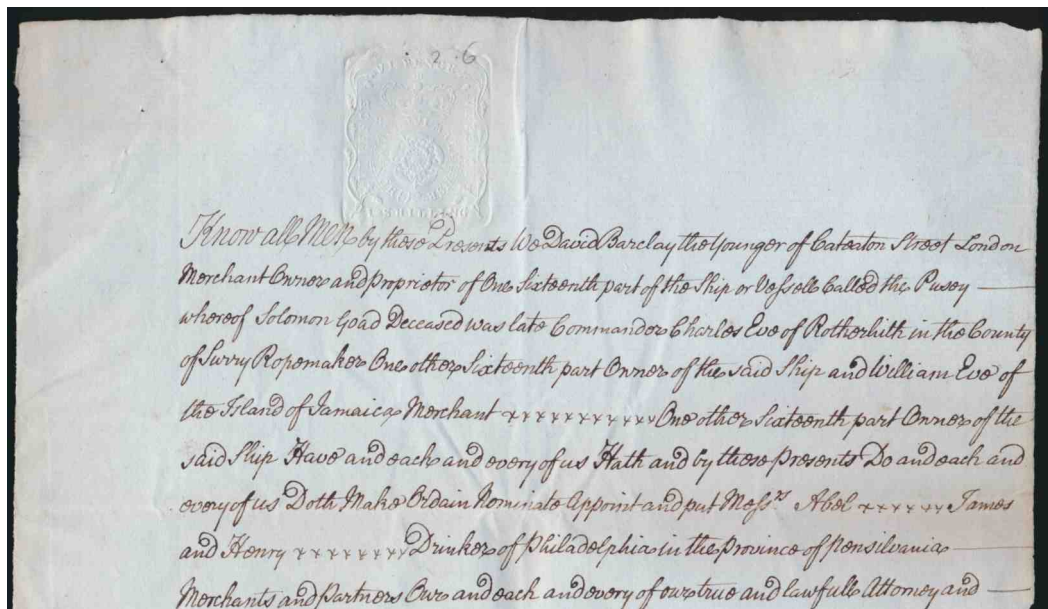 2 6
SHILLING
Know all Men by these Presents We David Barclay the Younger of Cateaton Street London
Merchant Owner and Proprietor of One Sixteenth part of the Ship or Vessell Called the Pusey
whereof Solomon Goad Deceased was late Commander Charles Eve of Rotherhith in the County
of Surry Ropemaker One other Sixteenth part Owner of the said Ship and William Eve of
the Island of Jamaica Merchant x x x x x x x x x x One other Sixteenth part Owner of the
said Ship Have and each and every of us Hath and by these Presents Do and each and
every of us Doth Make Ordain Nominate Appoint and put Mess.rs Abel x x x x x x James
and Henry x x x x x x x x Drinker of Philadelphia in the Province of Pensilvania
Merchants and Partners Our and each and every of our true and lawfull Attorney and